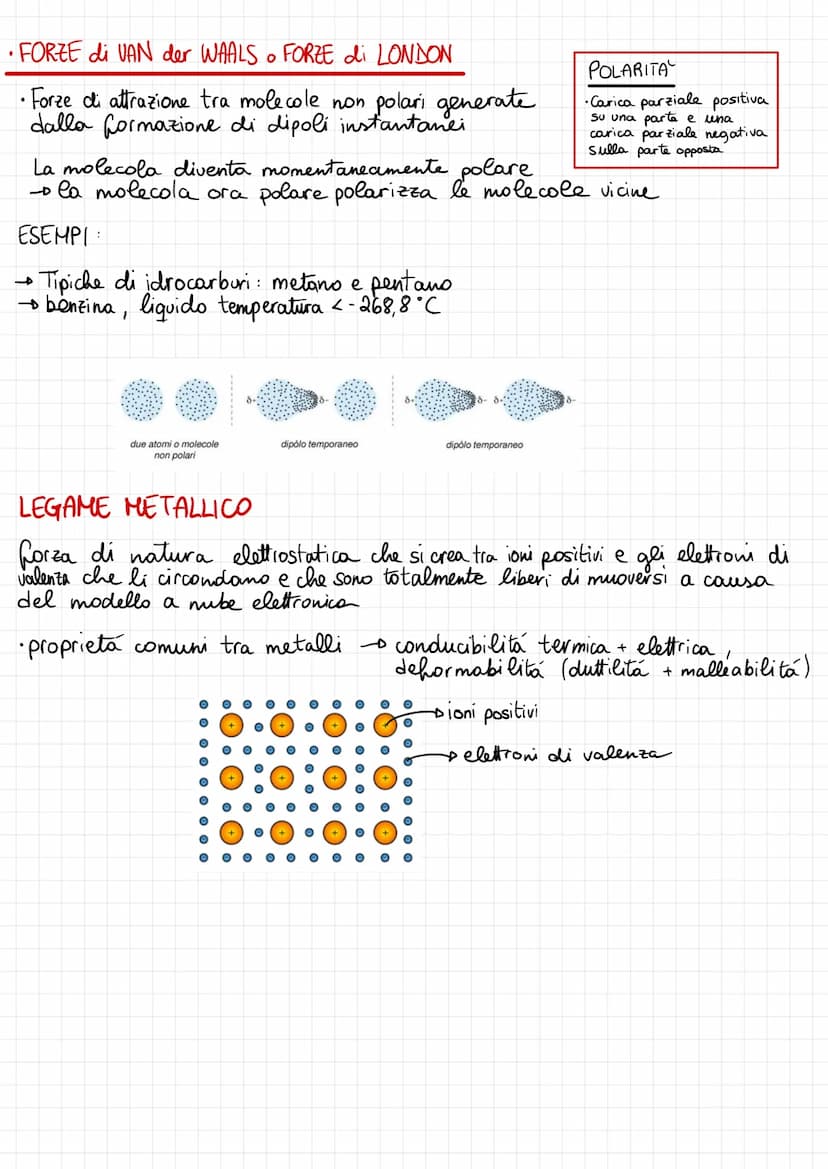 · FORZE di VAN der WAALS o FORZE di LONDON
· Forze di attrazione tra molecole non polari generate
dalla formazione di dipoli instantanei
La molecola diventa momentaneamente polare
→ la molecola ora polare polarizza le molecole vicine
POLARITA'
· Carica parziale positiva
su una parte e una
carica parziale negativa
sulla parte opposta
ESEMPI :
→ Tipiche di idrocarburi : metano e pentano
→ benzina, liquido temperatura < -268,8 °C
δ+ δ- δ+ δ- δ- δ-
due atomi o molecole
non polari
dipòlo temporaneo
dipòlo temporaneo
LEGAME METALLICO
forza di natura elettrostatica che si crea tra ioni positivi e gli elettroni di
valenza che li circondano e che sono totalmente liberi di muoversi a causa
del modello a nube elettronica
· proprietá comuni tra metalli → conducibilitá termica + elettrica ,
deformabilitá (duttilitá + malleabilitá)
→ ioni positivi
→ elettroni di valenza